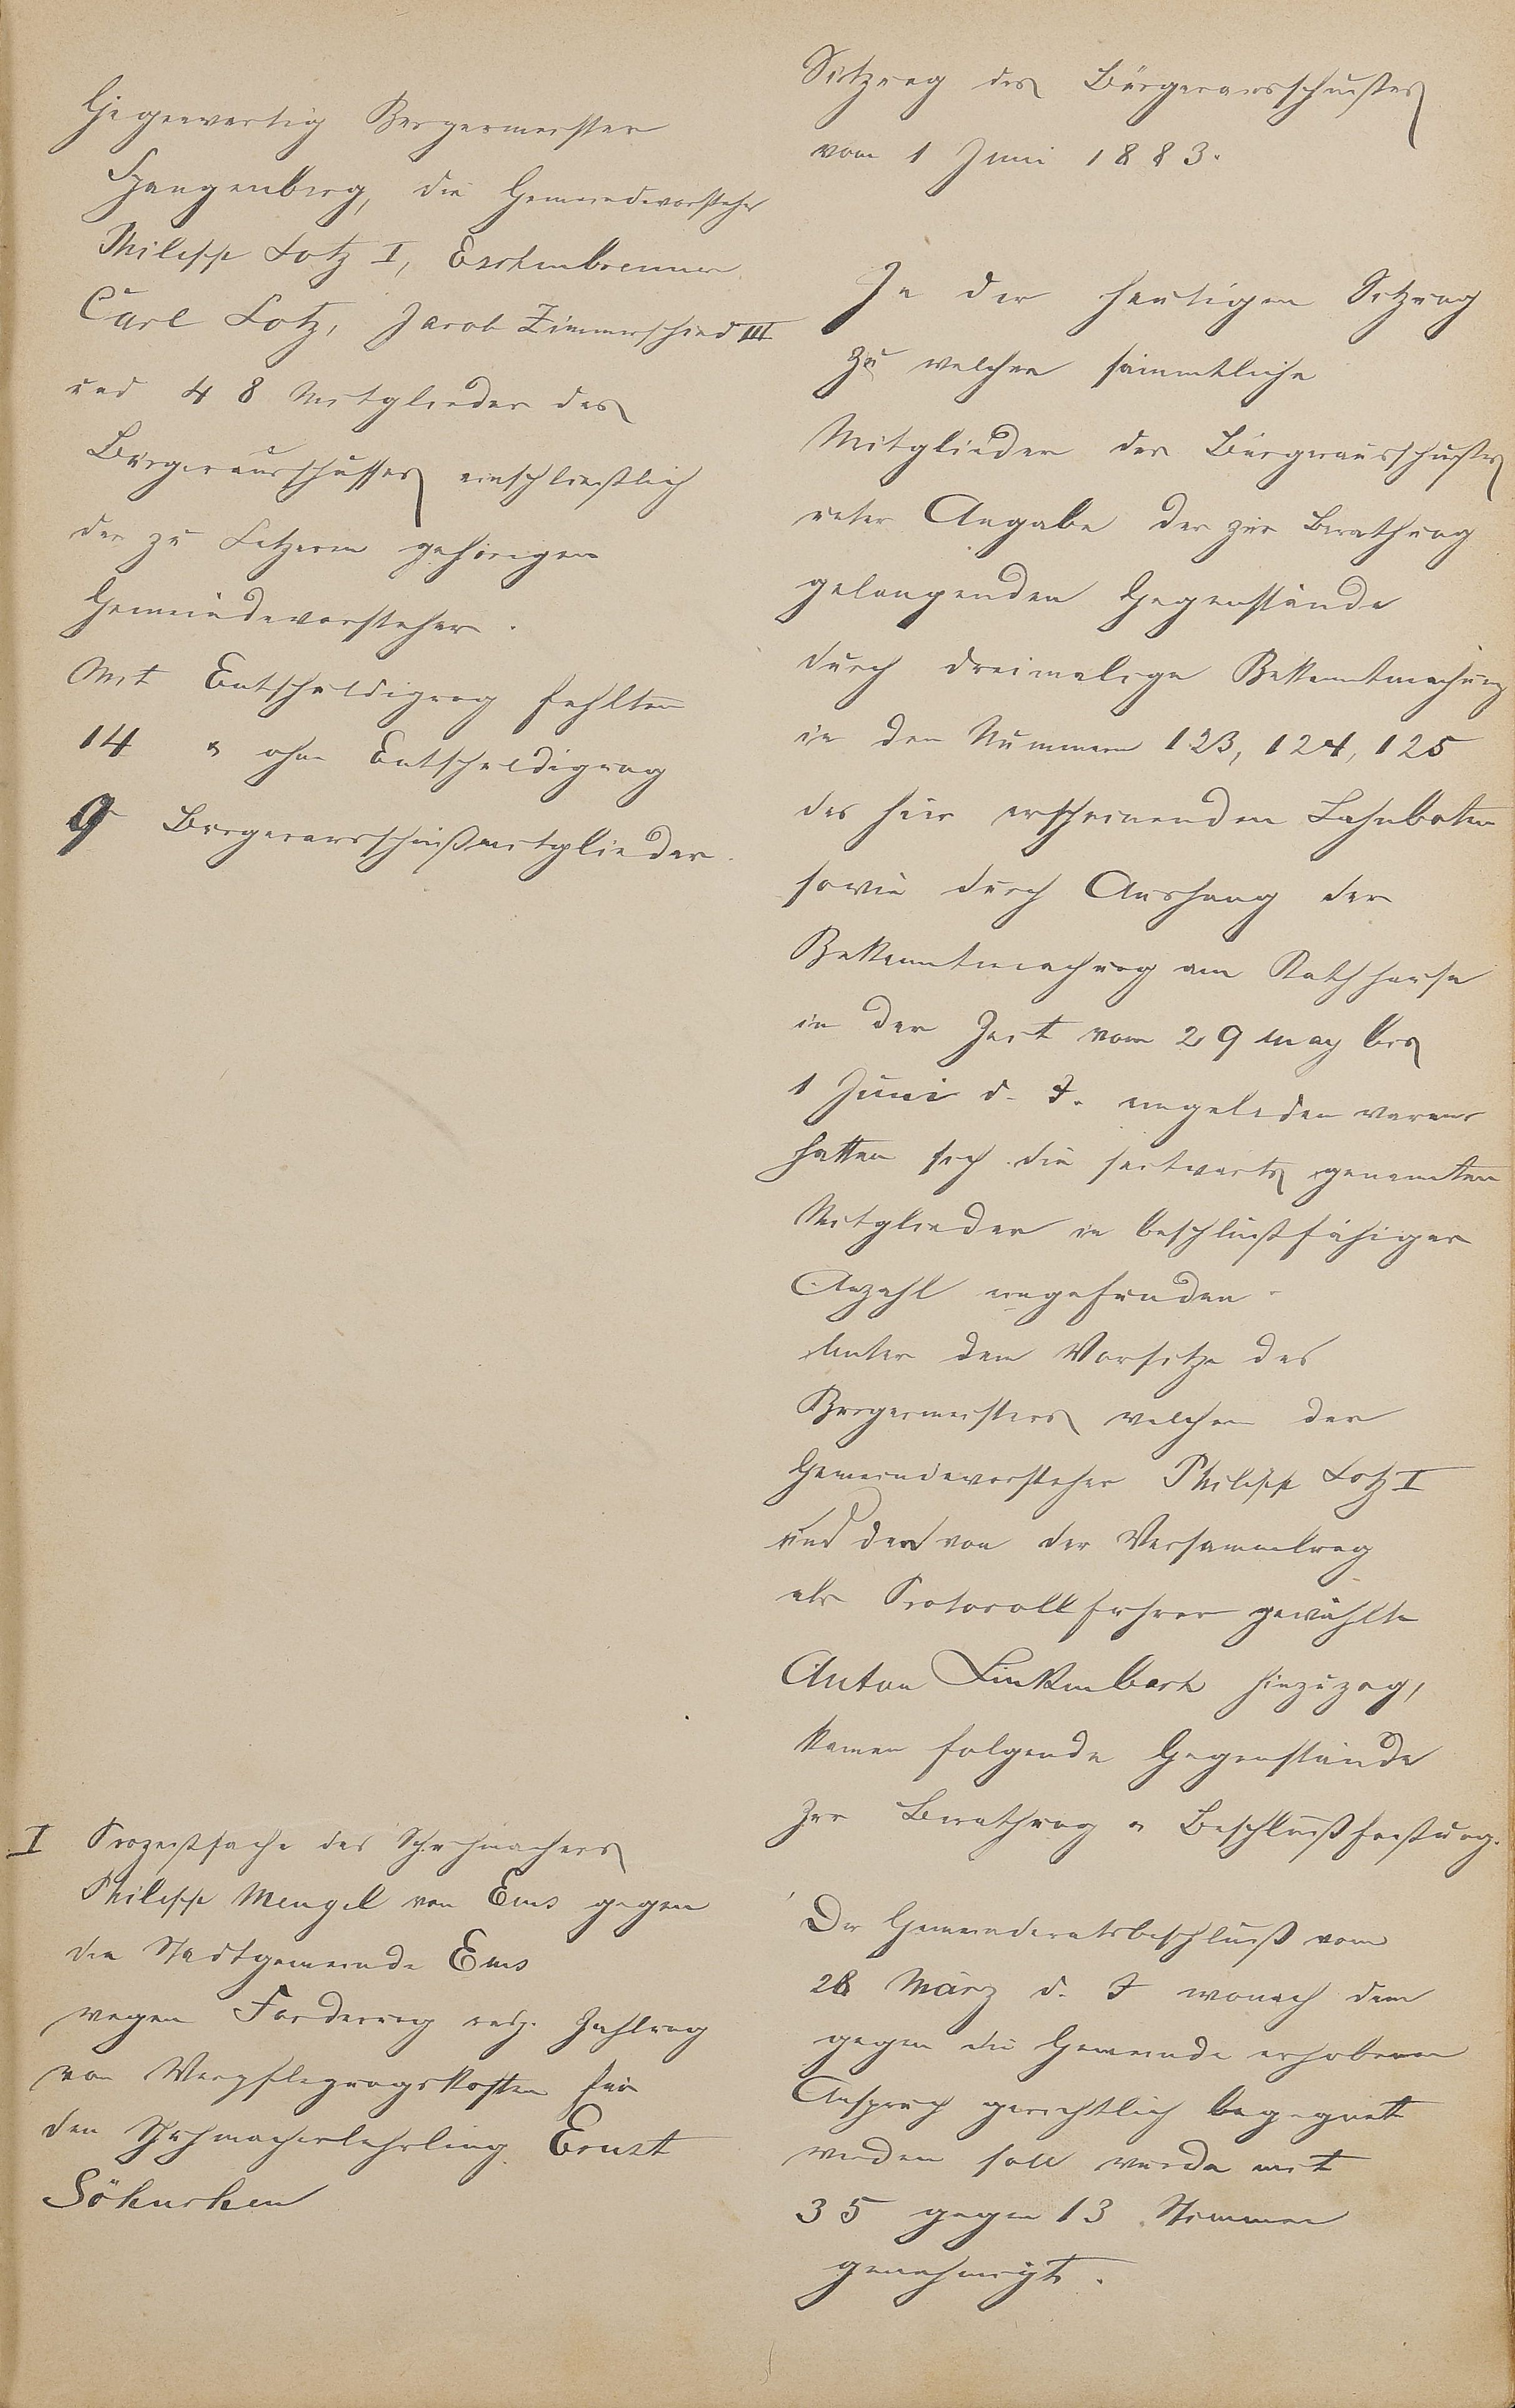 Gegenwertig Bürgermeister
Spangenberg, die Gemeindevorsteher
Philipp Lotz I, Eschenbrenner
Carl Lotz, Jacob Zimmerschied III
und 48 Mitglieder des
Bürgerausschusses einschliestlich
der zu Letzeren gehörigen
Gemeindevorsteher.
Mit Entschuldigung fehlten
14 u ohne Entschuldigung
9 Bürgerausschußmitglieder.
I Prozestsache des Schuhmachers
Philipp Mengel von Ems gegen
die Stadtgemeinde Ems
wegen Forderung resp. Zahlung
von Verpflegungskosten für
den Schuhmacherlehrling Ernst
Söhnchen
Sitzung des Bürgerausschustes
vom 1 Juni 1883.
In der heutigen Sitzung
zu welcher sämmtliche
Mitglieder des Bürgerausschustes
unter Angabe der zur Berathung
gelangenden Gegenstände
durch dreimalige Bekanntmachung
in den Nummern 123, 124, 125
des hier erscheinenden Lahnboten
sowie durch Aushang der
Bekanntmachung am Rathhause
in der Zeit vom 29 May bis
1 Juni d. J. eingeladen waren
hatten sich die seitwerts genannten
Mitglieder in beschlustfähiger
Anzahl eingefunden.
Unter dem Vorsitze des
Bürgermeisters welcher den
Gemeindevorsteher Philipp Lotz I
und den von der Versammlung
als Protocollführer gewählte
Anton Linkenbach hinzuzog,
kamen folgende Gegenstände
zur Berathung u Beschlußfastung.
Der Gemeinderatsbeschluß vom
28 März d. J wonach dem
gegen die Gemeinde erhobenen
Anspruch gerichtlich begegnet
werden soll wurde mit
35 gegen 13 Stimmen
genehmigt.